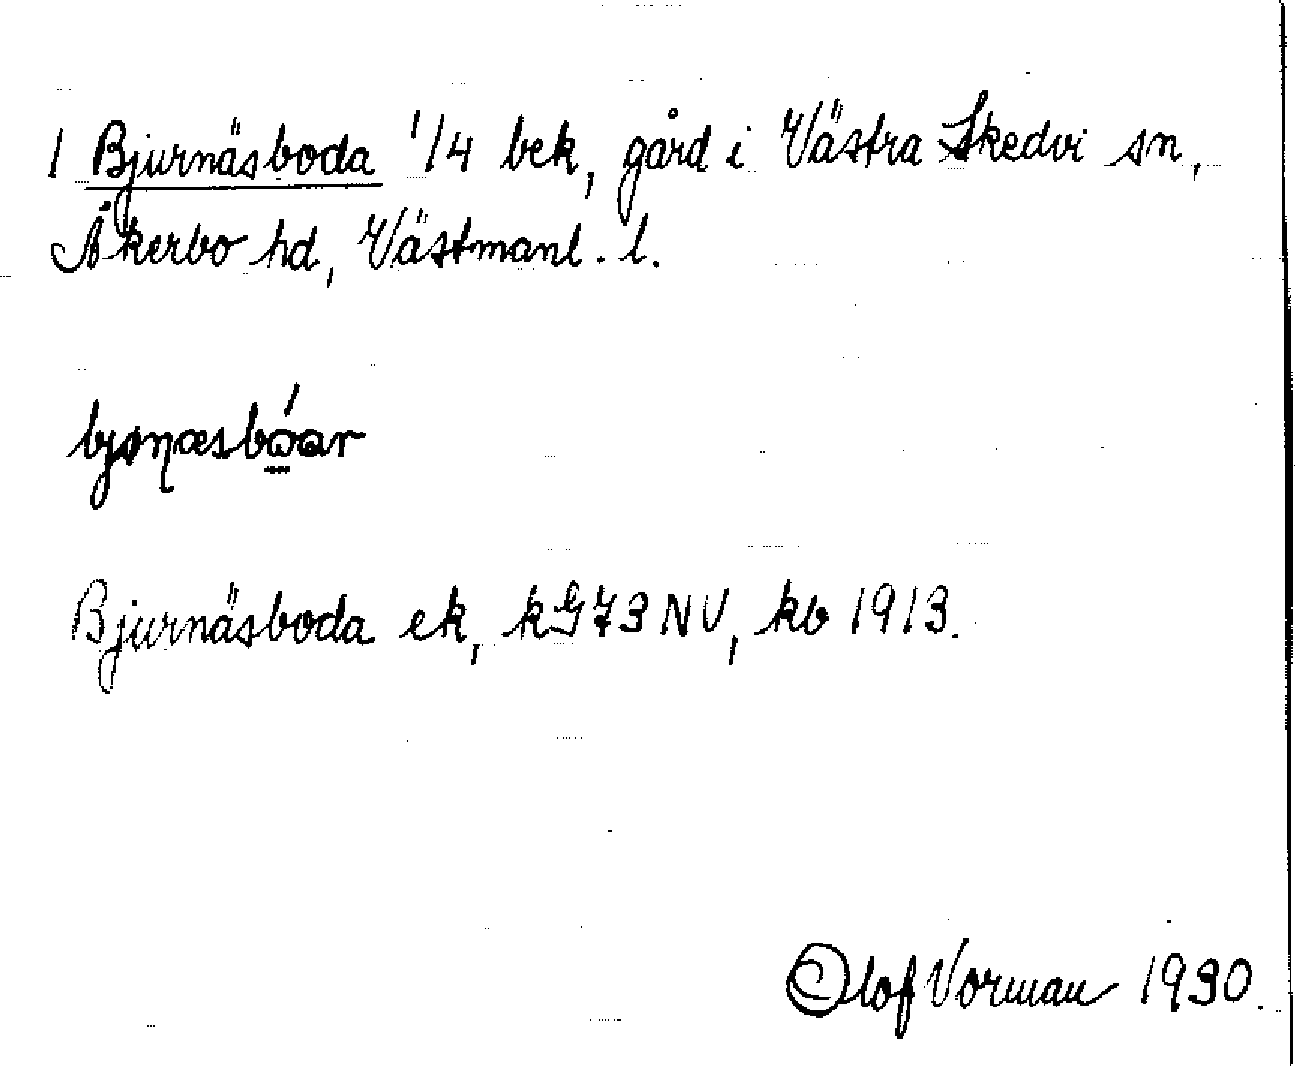 1 Bjurnäsboda 1/4 bek, gård i Västra Skedvi sn,
Åkerbo hd, Västmanl. l.
bjøɳæsbǿar
Bjurnäsboda ek, kG73NV, kb 1913.
Olof Vorman 1930.